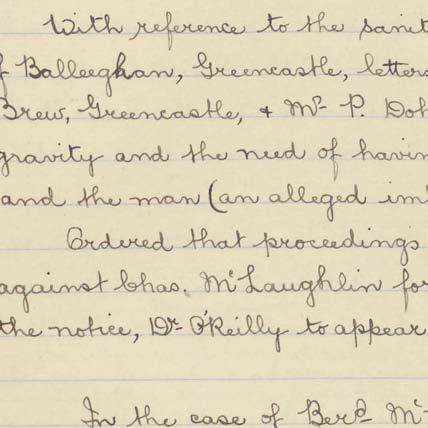 With reference to the sanit
f Balleeghan, Greencastle, letters
Brew, Greencastle, & Mr P. Doh
gravity and the need of havin
and the man (an alleged im
Ordered that proceedings
against Chas. McLaughlin for
the notice, Dr. O'Reilly to appear
In the case of Berd. Mc